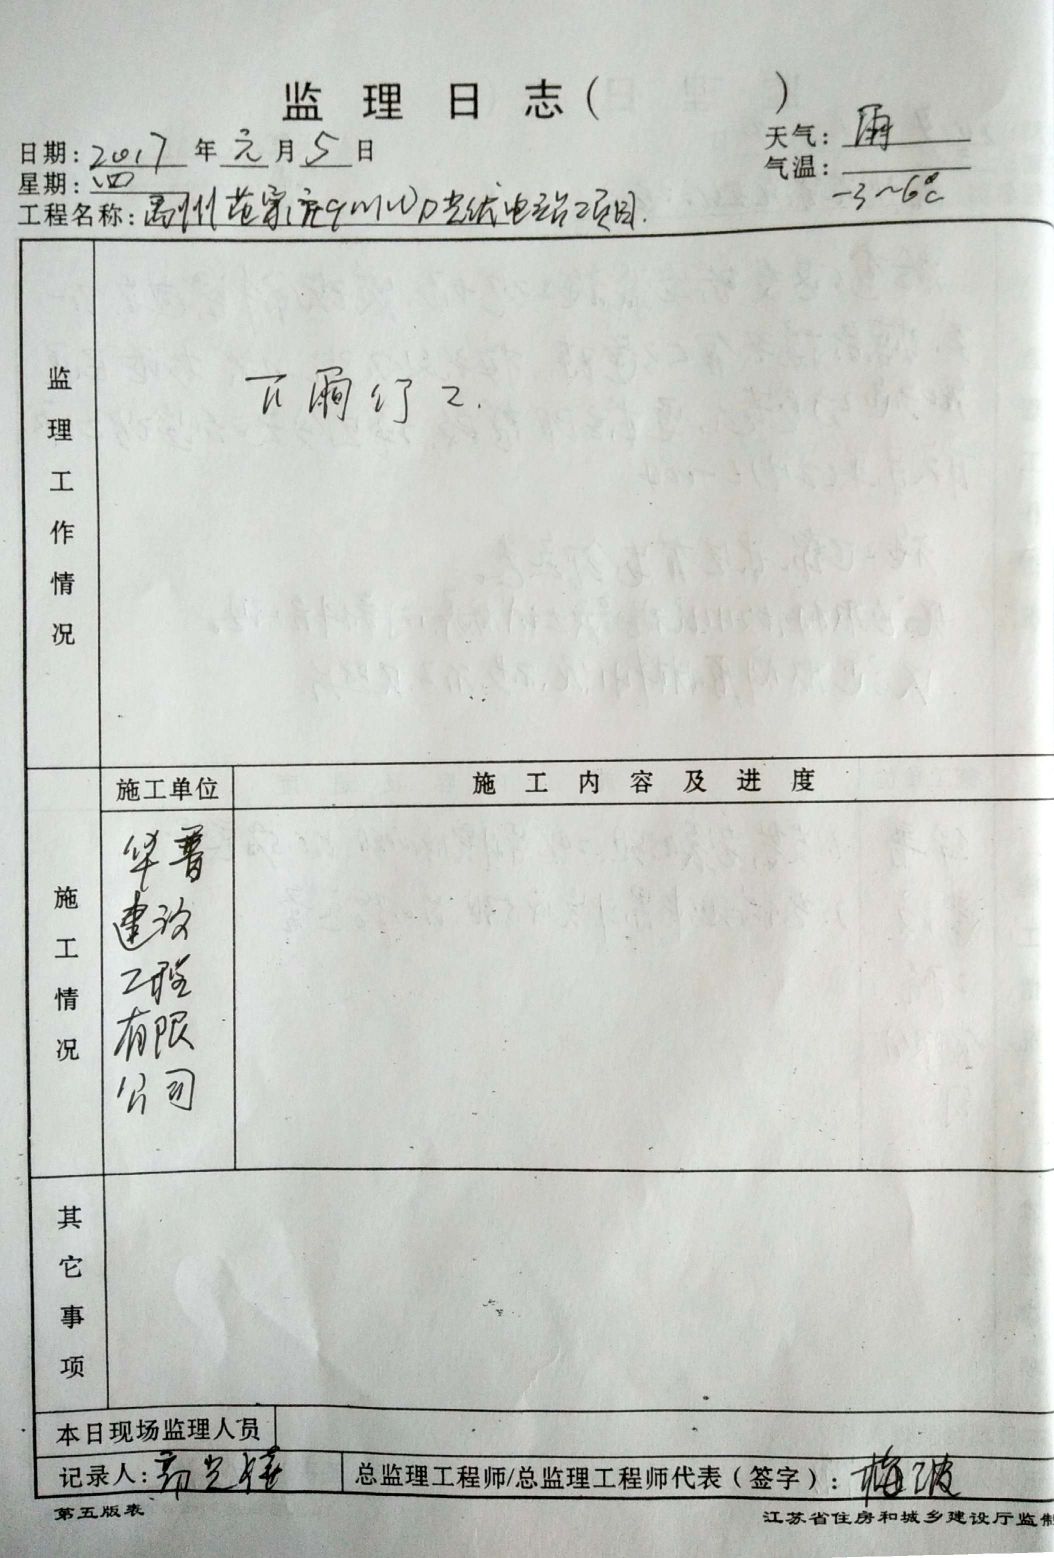 监理日志（ ）
日期：2017年元月5日
天气：雨
星期：四
气温：-3~6℃
工程名称：禹州范家庄9MWp光伏电站项目.
监理工作情况
下雨停工.
施工情况
施工单位
施工内容及进度
华普
建设
工程
有限
公司
其它事项
本日现场监理人员
记录人：
总监理工程师/总监理工程师代表（签字）：梅波
第五版表
江苏省住房和城乡建设厅监制